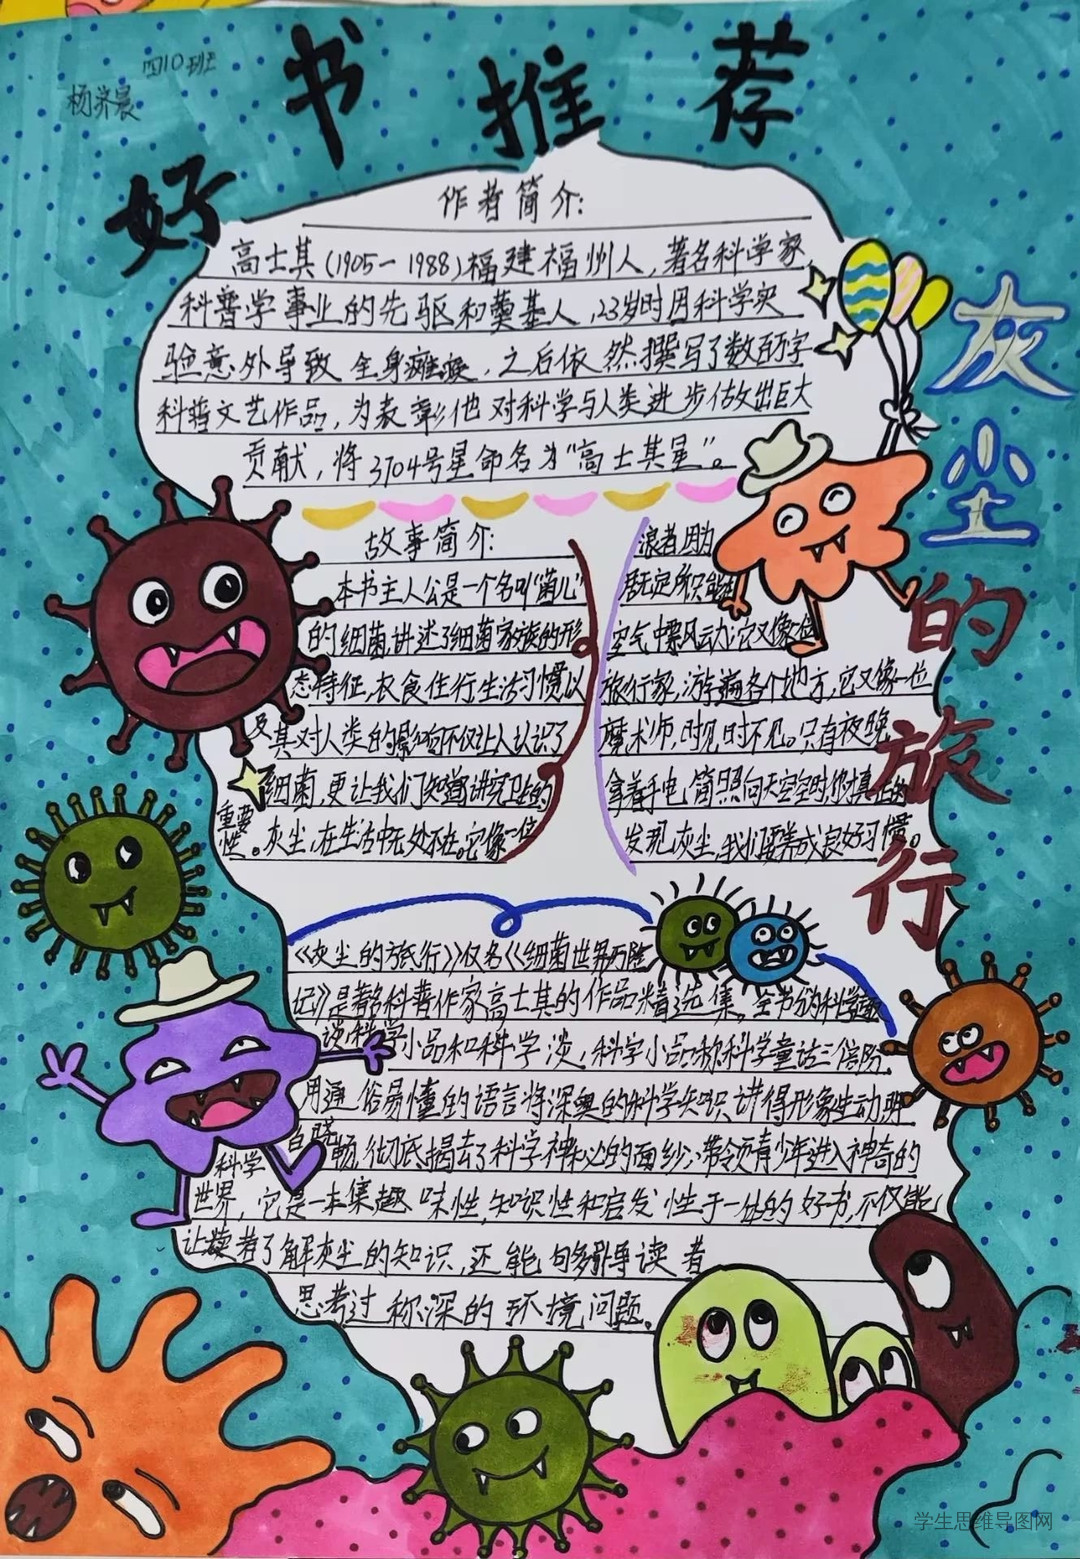 四10班
杨济晨
好书推荐
灰尘的旅行
作者简介:
高士其(1905-1988)福建福州人,著名科学家,
科普学事业的先驱和奠基人,23岁时因科学实
验意外导致全身瘫痪,之后依然撰写了数百万字
科普文艺作品,为表彰他对科学与人类进步做出巨大
贡献,将3704号星命名为“高士其星”。
故事简介:
本书主人公是一个名叫“菌儿”
的细菌,讲述了细菌家族的形
态特征,衣食住行生活习惯以
及其对人类的影响不仅让人认识了
细菌,更让我们知道讲究卫生的
重要性。灰尘,在生活中无处不在。它像一位
浪者因为
居无定所只能
空气中飘风动;它又像位
旅行家,游遍各个地方,它又像一位
魔术师,时见时不见。只有夜晚
拿着手电筒照向天空时,你才真正的
发现,灰尘,我们要养成良好习惯。
《灰尘的旅行》仅名《细菌世界历险
记》是著名科普作家高士其的作品精选集。全书分为科学趣
谈科学小品和科学谈,科学小品称科学童话三个部分,
用通俗易懂的语言将深奥的科学知识讲得形象生动明
白晓畅,彻底揭去了科学神秘的面纱,带领青少年进入神奇的
科学世界,它是一本集趣味性,知识性和启发性于一体的好书,不仅能
让读者了解灰尘的知识,还能够引导读者
思考过称深的环境问题。
学生思维导图网